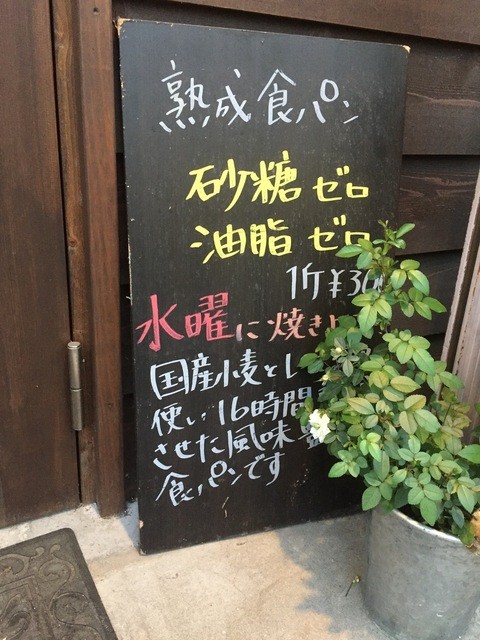 熟成食パン
砂糖ゼロ
油脂ゼロ
1斤¥3
水曜に焼き
国産小麦と
使い16時間
させた風味豊
食パンです